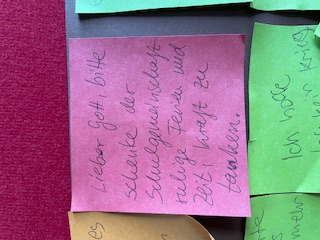 Lieber Gott bitte
schenke der
Schulgemeinschaft
ruhige Ferien und
Zeit! Kraft zu
tanken.
Ich hoffe
kein Krieg
es
mehr